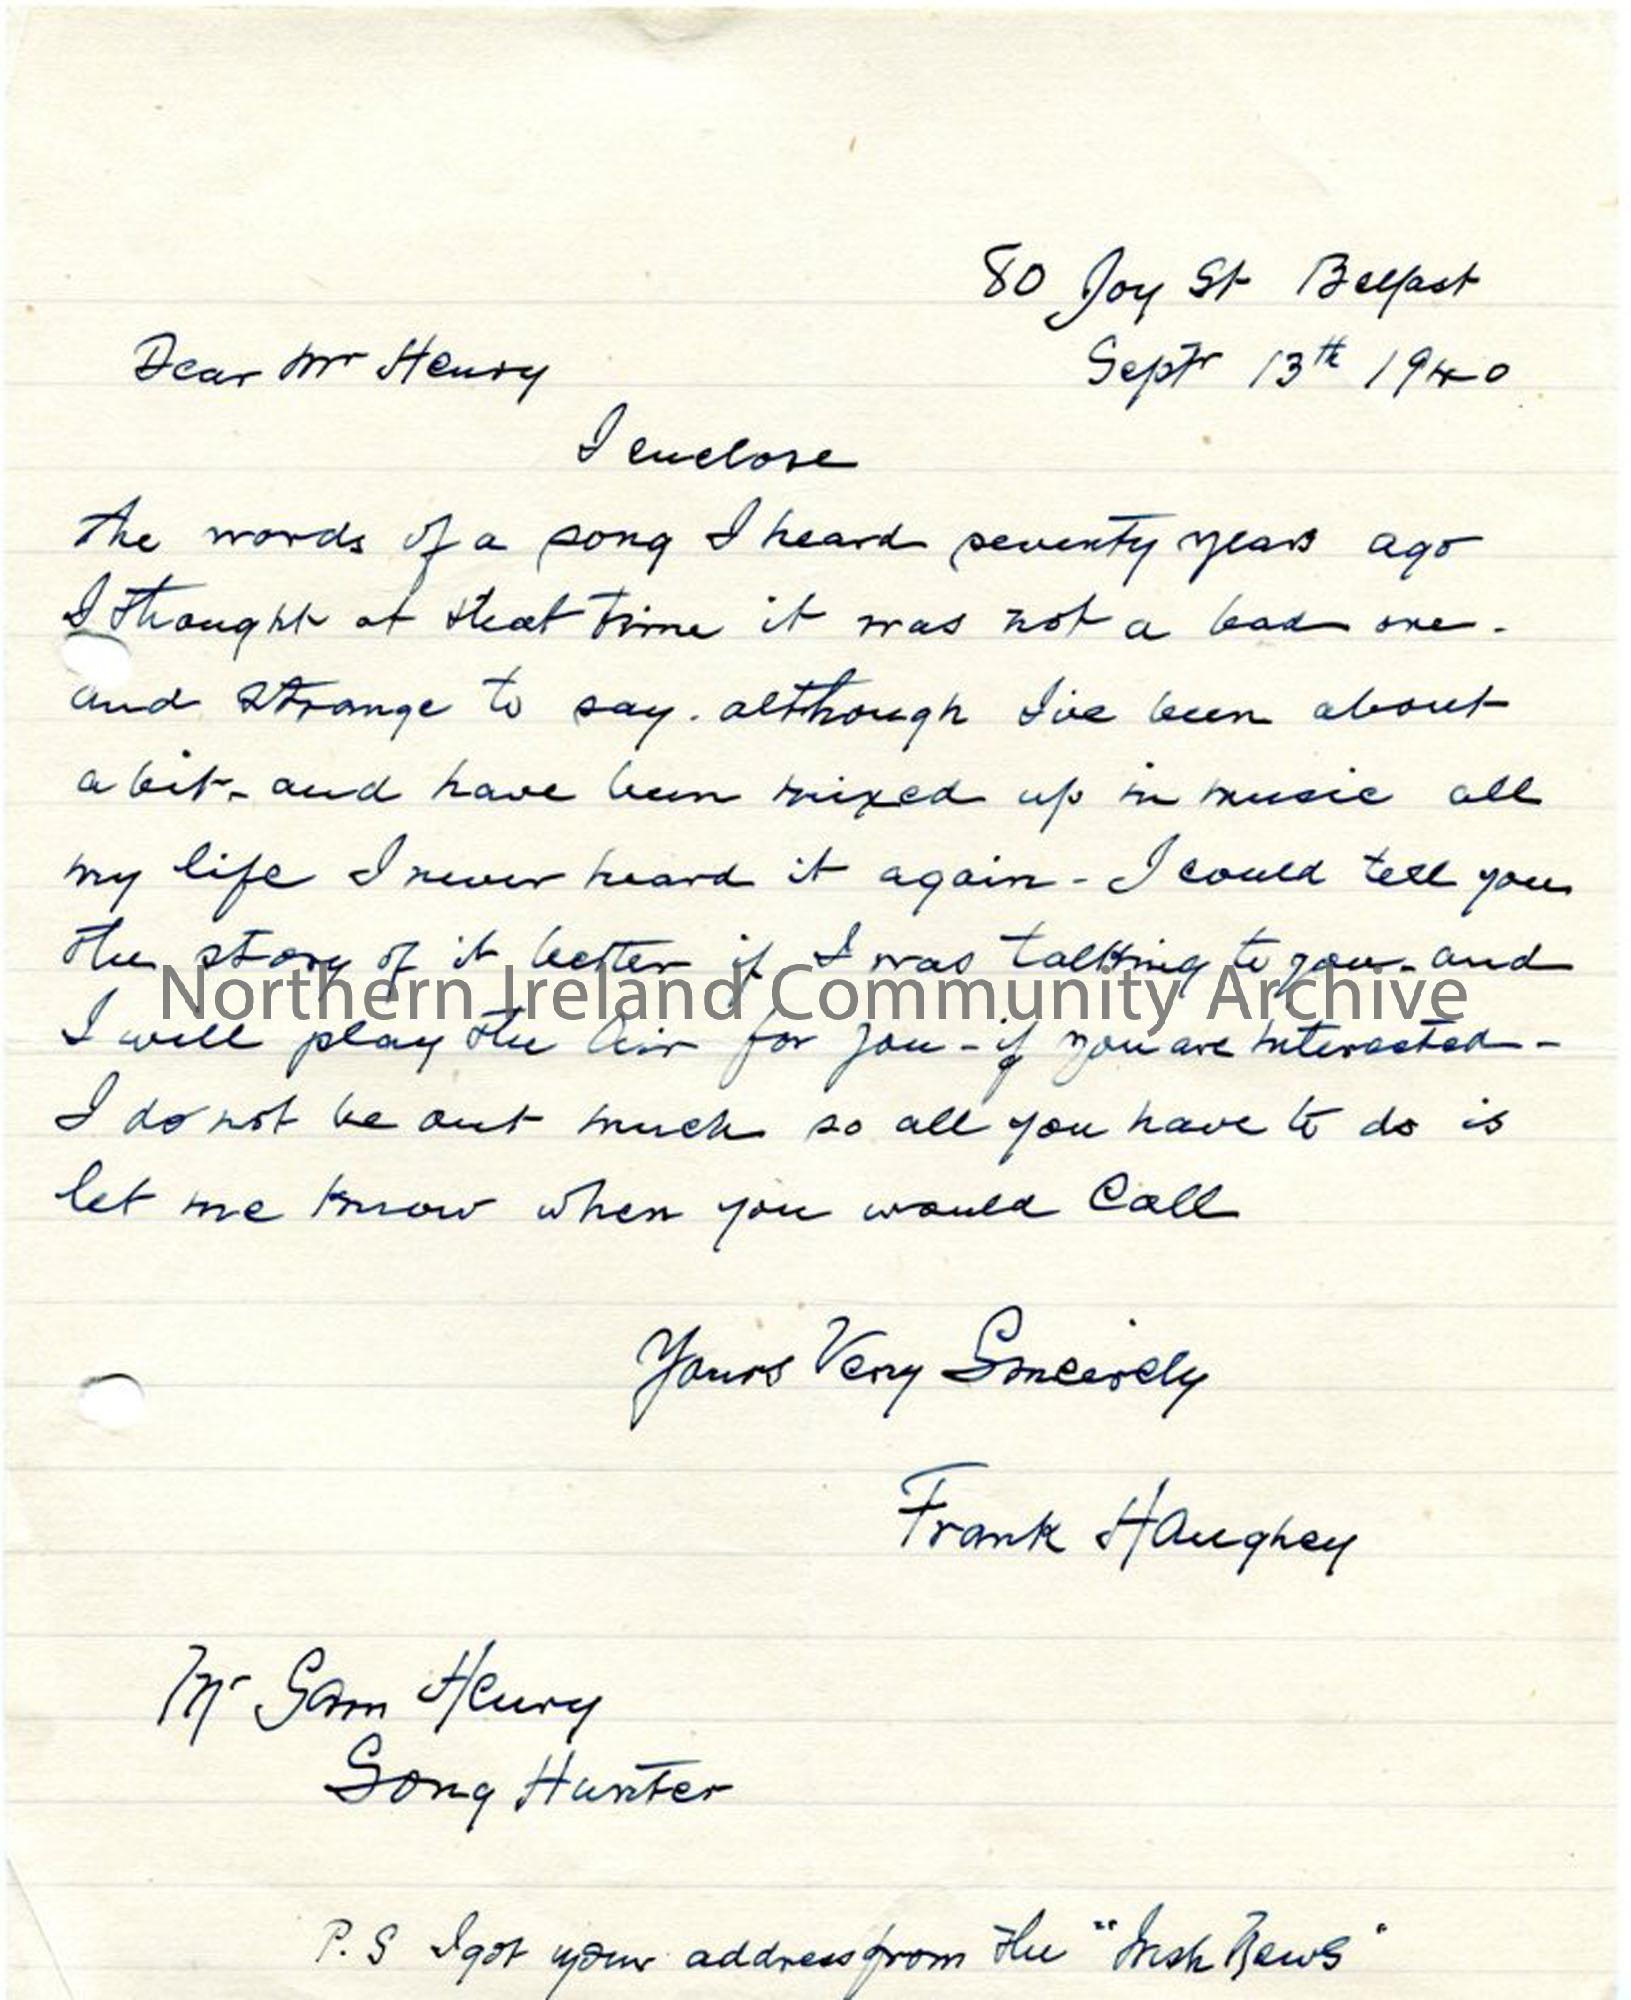 80 Joy St Belfast
Septr 13th 1940
Dear Mr Henry
I enclose
the words of a song I heard seventy years ago
I thought at that time it was not a bad one.
and strange to say. although I've been about
a bit - and have been mixed up in music all
my life I never heard it again - I could tell you
the story of it better if I was talking to you - and
Northern Ireland Community Archive
I will play the Air for you - if you are interested -
I do not be out much so all you have to do is
let me know when you would Call
Yours Very Sincerely
Frank Haughey
Mr Sam Henry
Song Hunter
P.S I got your address from the "Irish News"